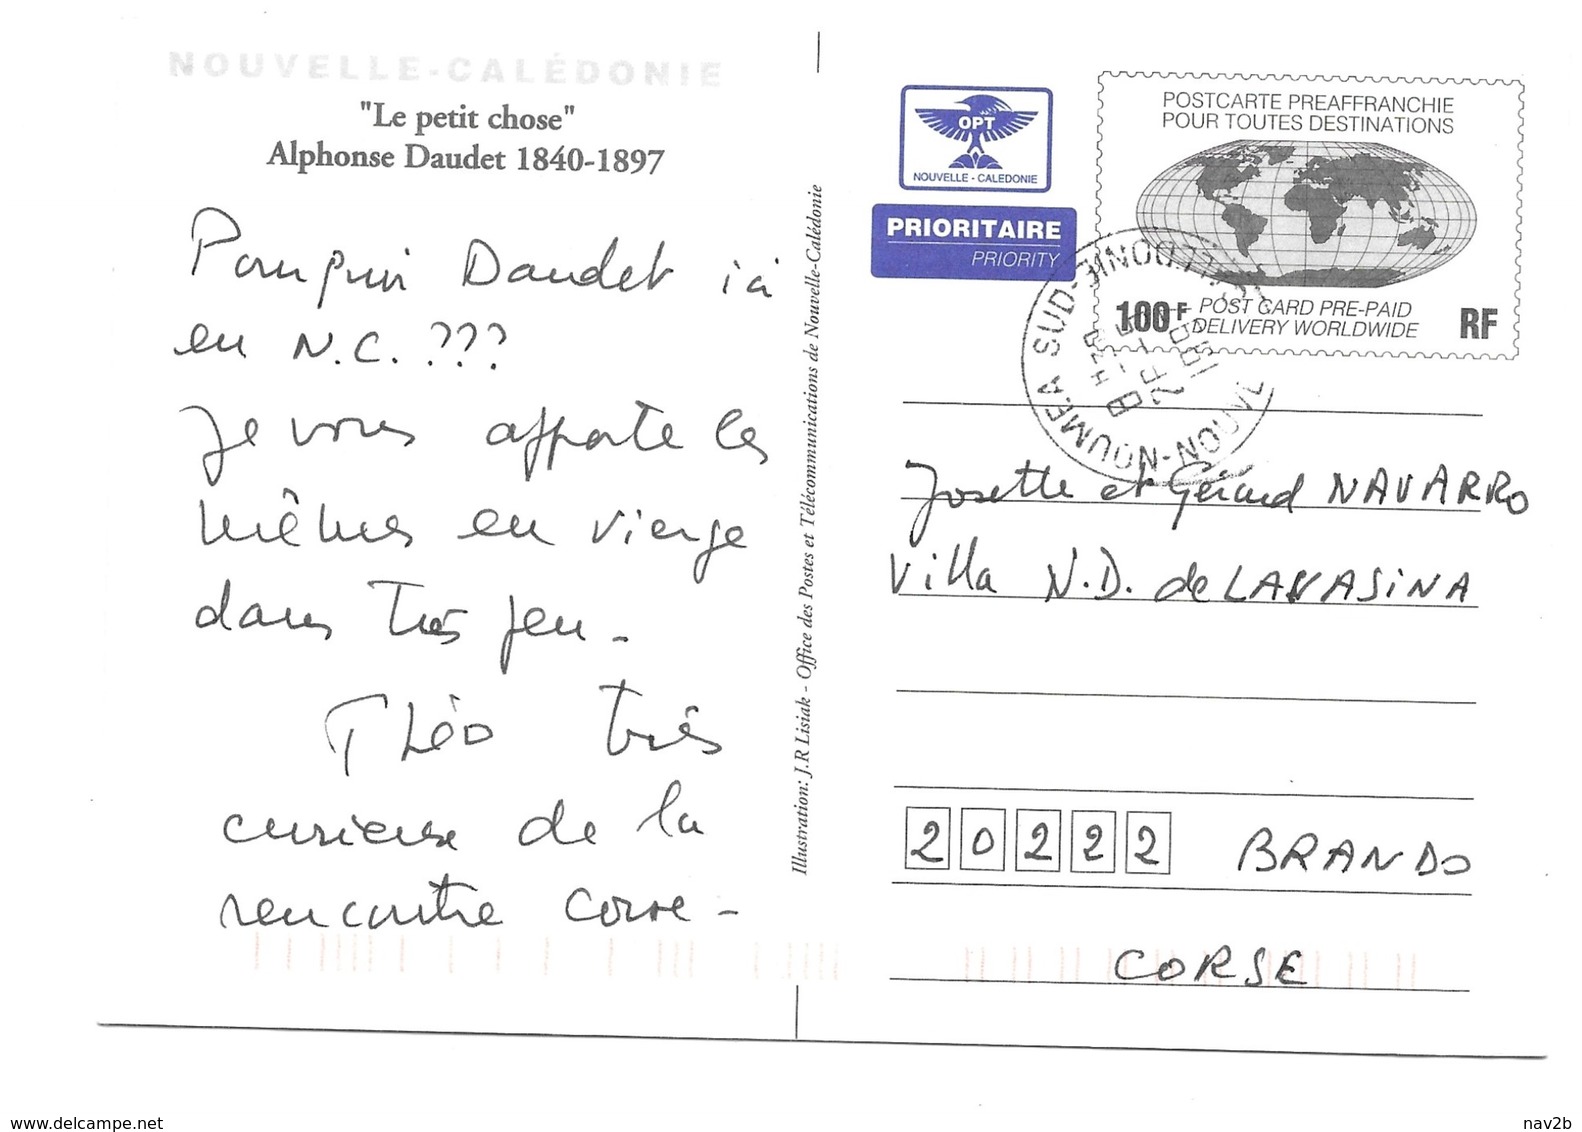 NOUVELLE-CALÉDONIE
"Le petit chose"
Alphonse Daudet 1840-1897
Pourquoi Daudet ici
en N.C. ???
Je vous apporte les
mêmes en vierge
dans très peu -
Théo très
curieuse de la
rencontre corse -
Illustration: J.R Lisiak - Office des Postes et Télécommunications de Nouvelle-Calédonie
OPT
NOUVELLE - CALEDONIE
PRIORITAIRE
PRIORITY
POSTCARTE PREAFFRANCHIE
POUR TOUTES DESTINATIONS
100 F
POST CARD PRE-PAID
DELIVERY WORLDWIDE
RF
NOUMEA SUD
Josette et Gérard NAVARRO
Villa N.D. de LAVASINA
20222 BRANDO
CORSE
www.delcampe.net
nav2b